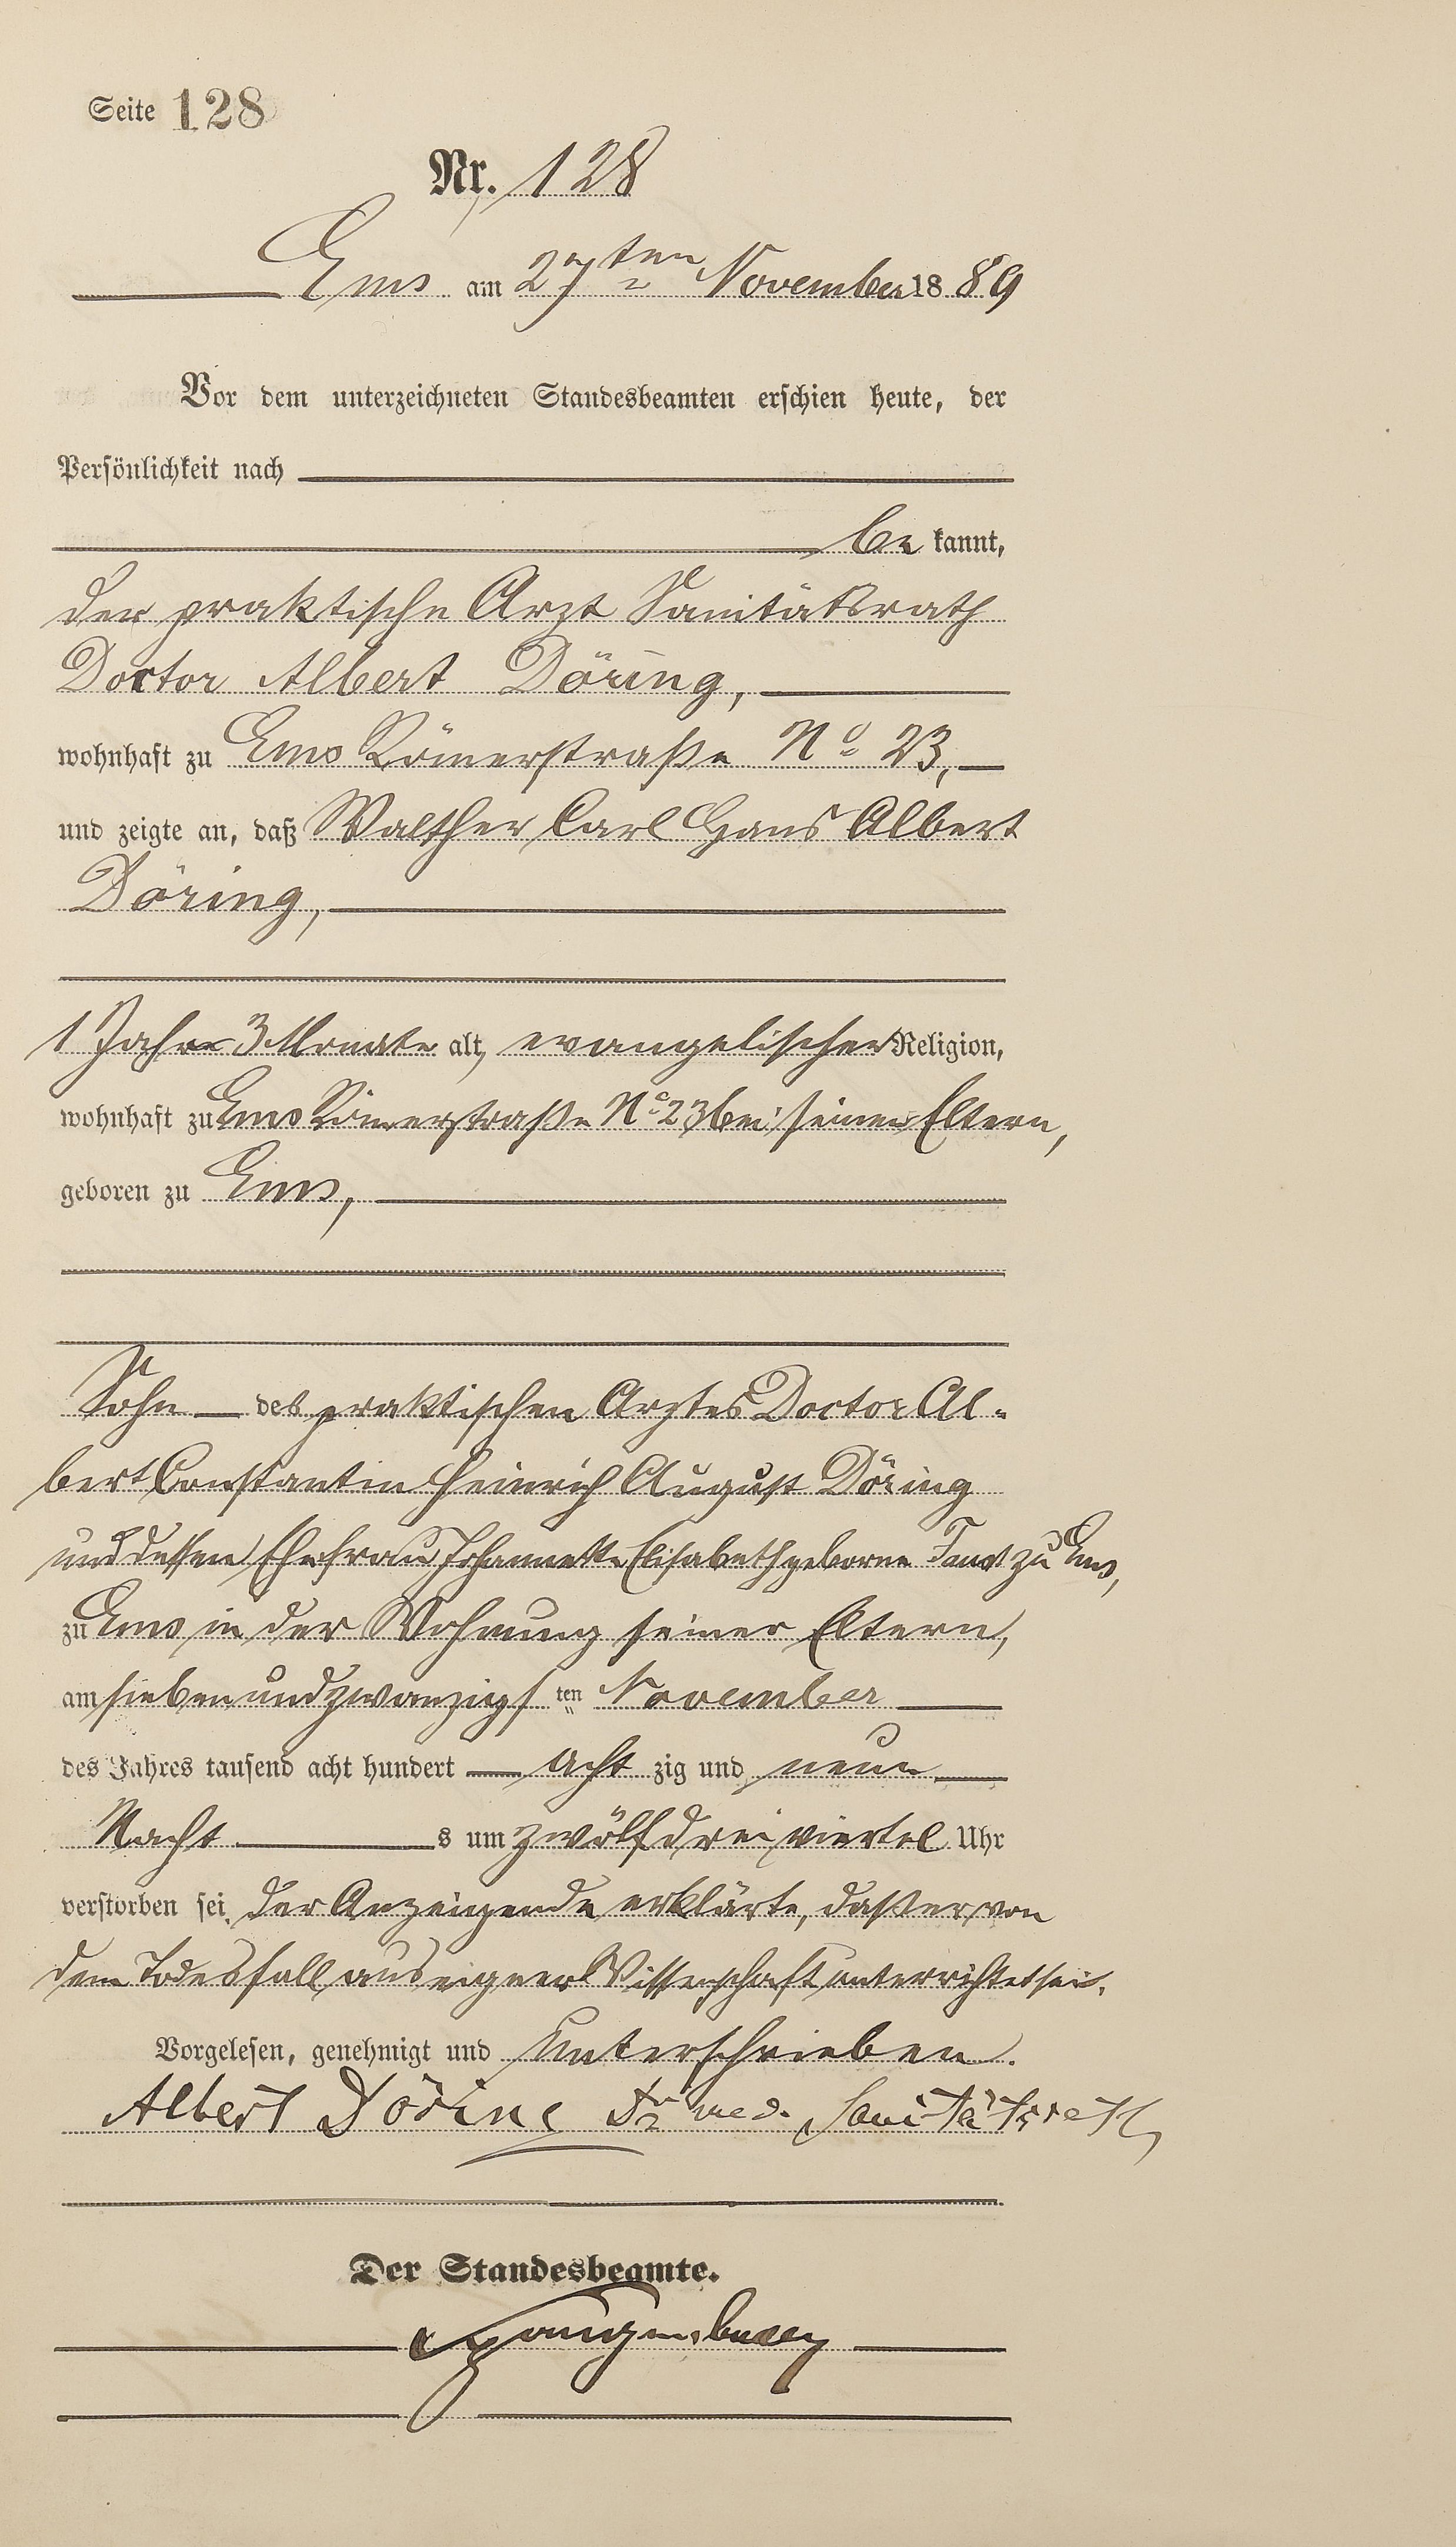 Seite 128
Nr. 128
Ems am 27ten November 1889
Vor dem unterzeichneten Standesbeamten erschien heute, der
Persönlichkeit nach
be kannt,
der praktische Arzt Sanitätsrath
Doctor Albert Döring,
wohnhaft zu Ems Römerstraße No 23,
und zeigte an, daß Walther Carl Hans Albert
Döring,
1 Jahr 3 Monate alt, evangelischer Religion,
wohnhaft zu Ems Römerstraße No 23 bei seinen Eltern,
geboren zu Ems,
Sohn des praktischen Arztes Doctor Al-
bert Constantin Heinrich August Döring
und dessen Ehefrau Johannette Elisabeth geborne zu Ems,
zu Ems in der Wohnung seiner Eltern,
am siebenundzwanzigsten November
des Jahres tausend acht hundert acht zig und neun
Nacht s um zwölf dreiviertel Uhr
verstorben sei. Der Anzeigende erklärte, daß er von
dem Todesfall aus eigner Wissenschaft unterrichtet sei.
Vorgelesen, genehmigt und unterschrieben.
Albert Döring Dr med. Sanitätsrath
Der Standesbeamte.